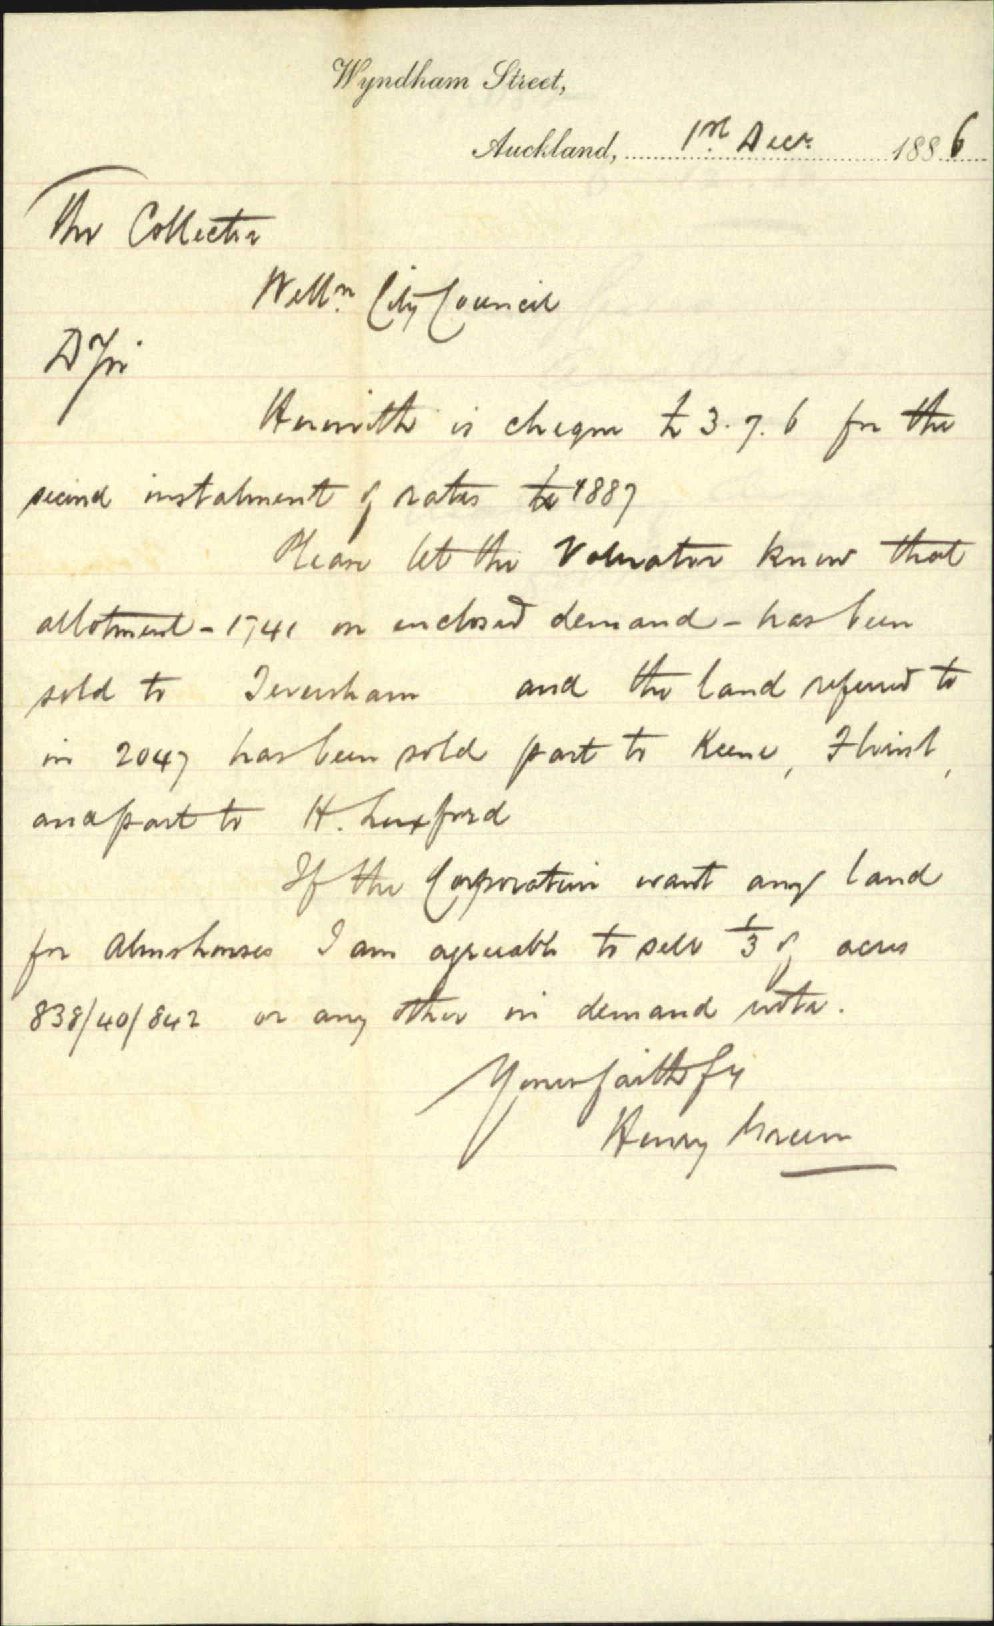 Wyndham Street,
Auckland, 1st Decr. 1886
The Collector
Welln. City Council
D Sir
Herewith is cheque £3.7.6 for the
second instalment of rates to 1887
Please let the Valuator know that
allotment - 1741 on enclosed demand - has been
sold to Teversham and the land referred to
in 2047 has been sold part to Keene,
and part to H. Luxford
If the Corporation want any land
for Almshouses I am agreeable to sell 1/3 of acres
838/40/842 or any other in demand note.
Yours faithfy
Henry Green